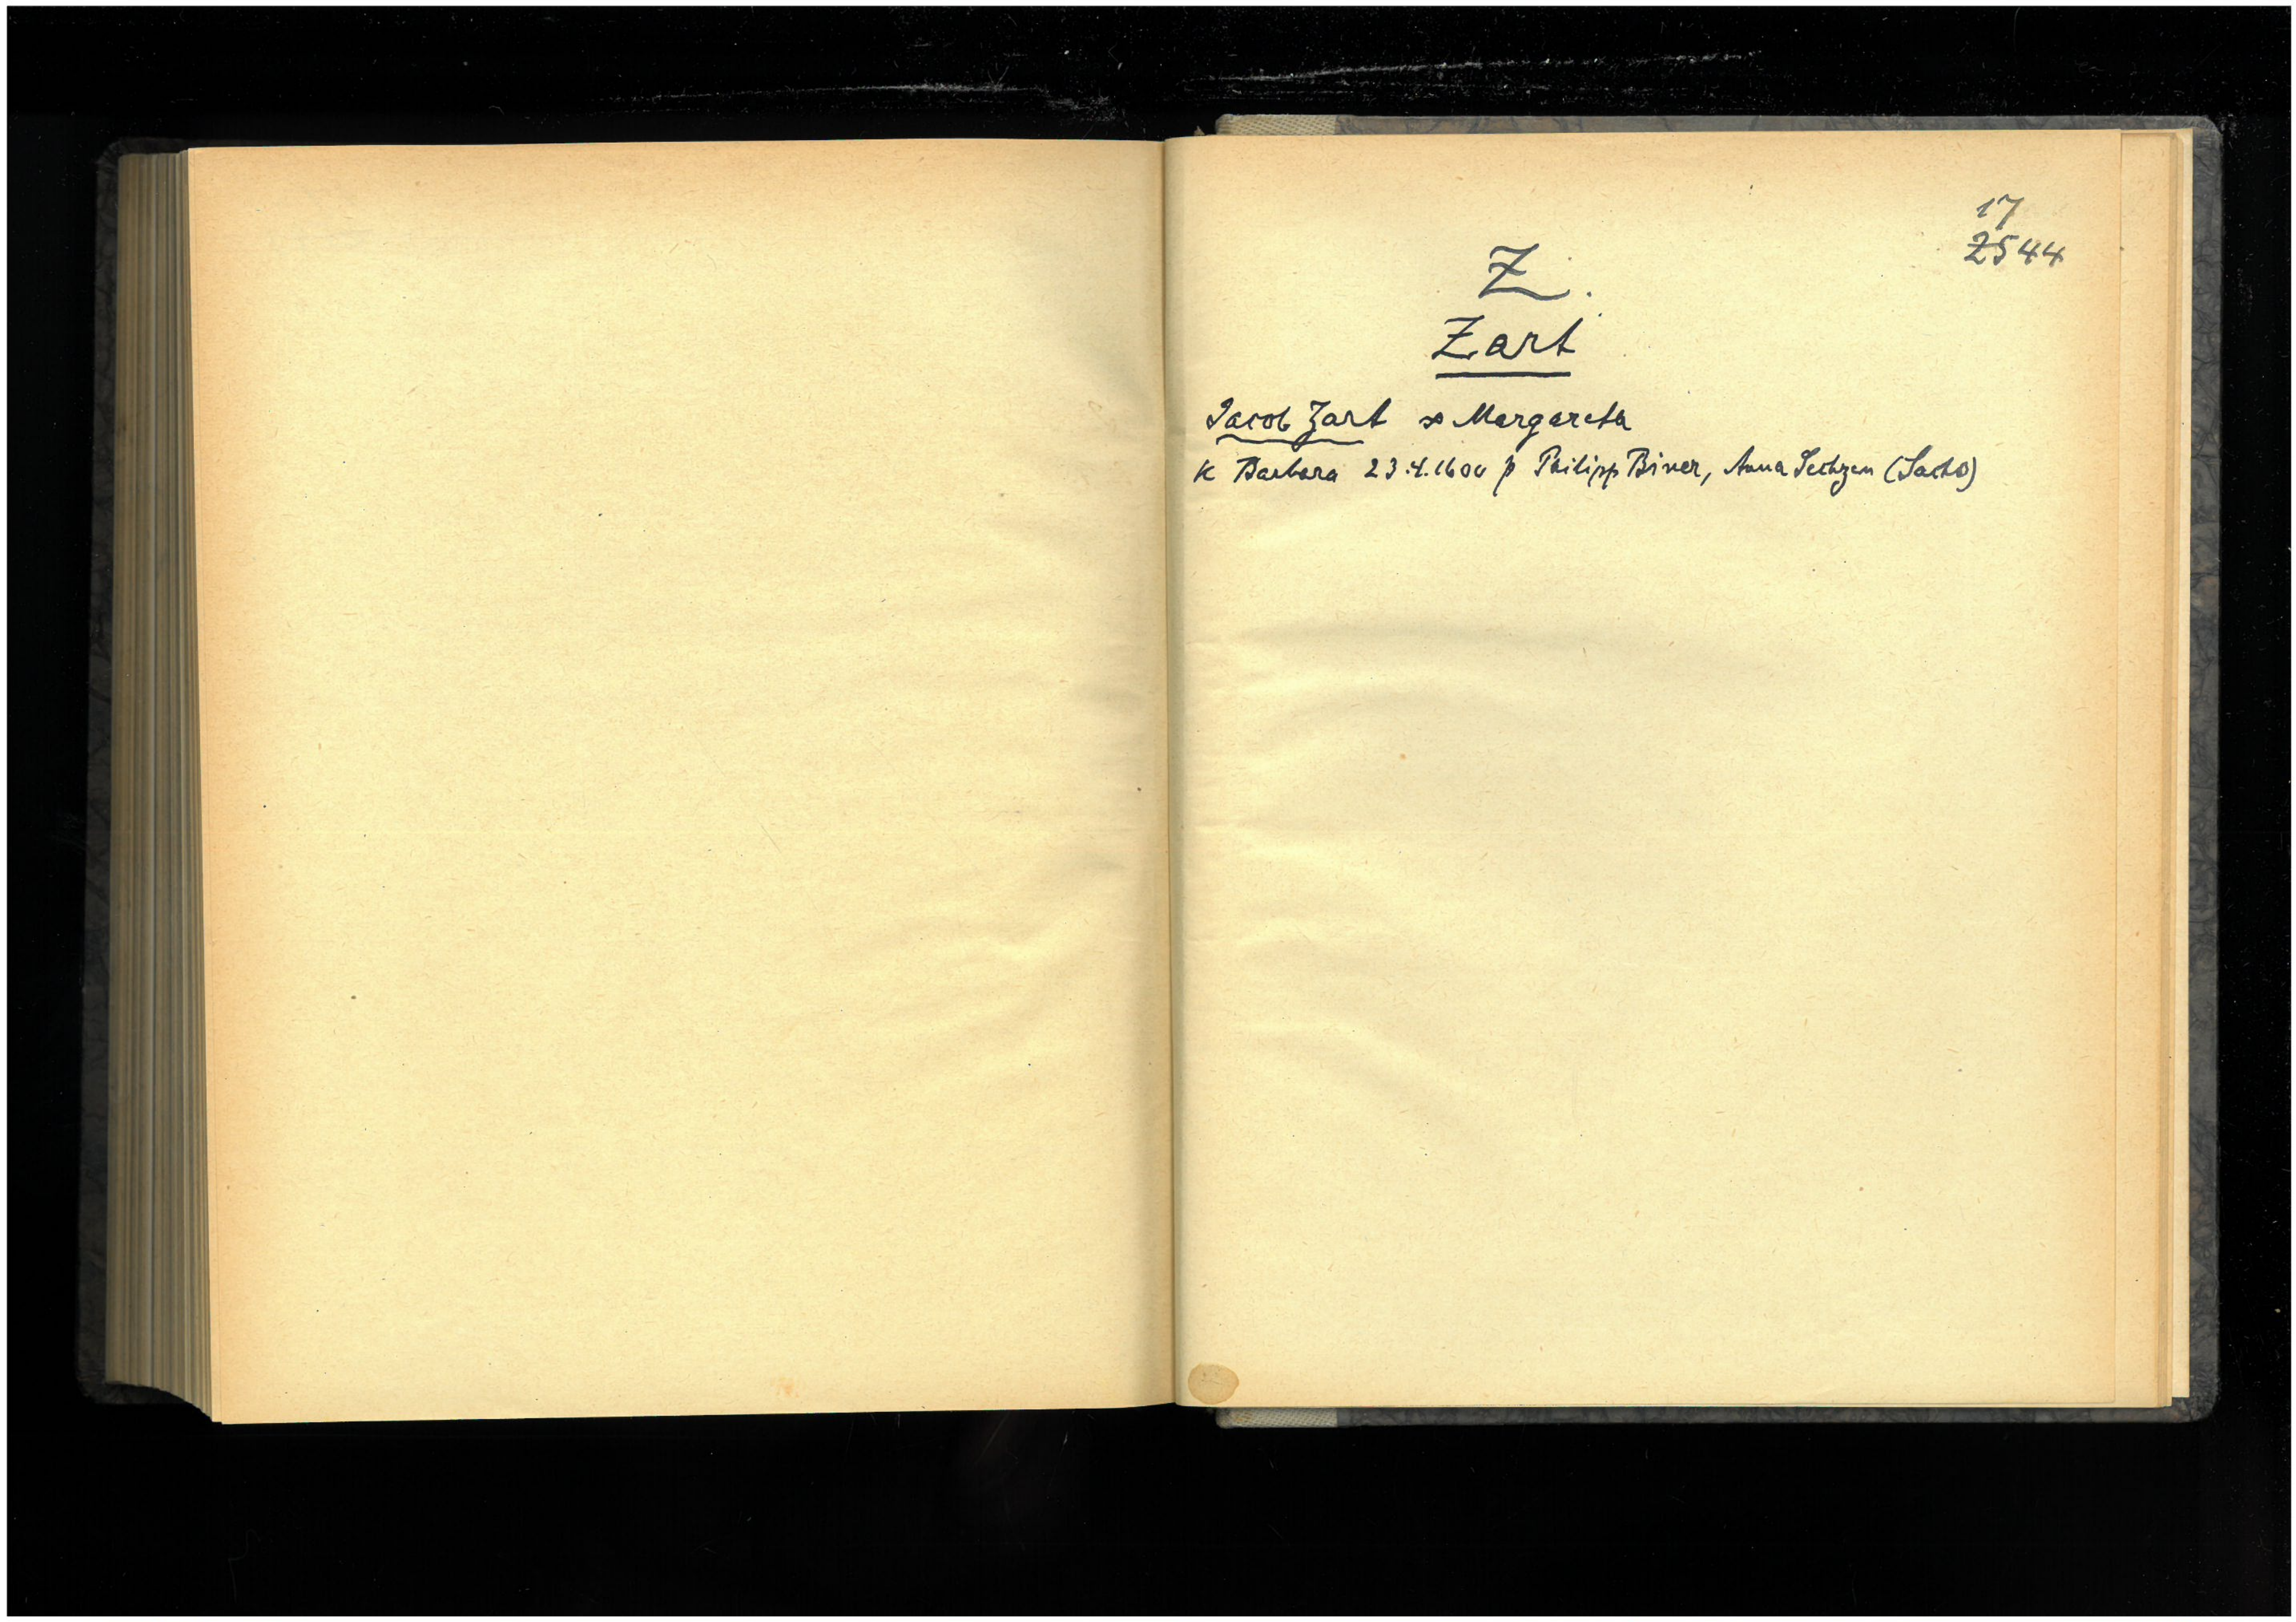 17
2544
Z.
Zart
Jacob Zart ∞ Margareta
K Barbara 23.4.1600 p Philipp Biner, Anna